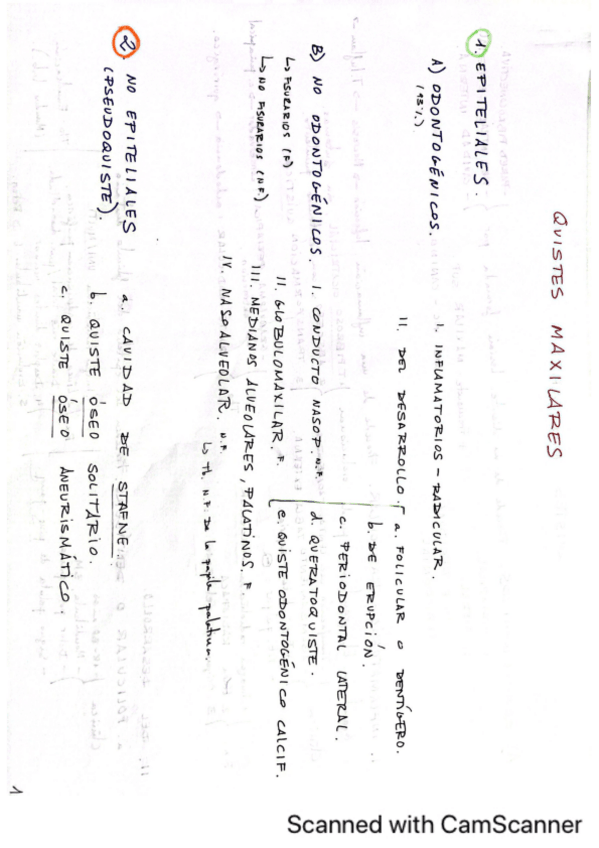 QUISTES MAXILARES
1. EPITELIALES.
A) ODONTOGÉNICOS. I. INFLAMATORIOS - RADICULAR.
(93%)
II. DEL DESARROLLO a. FOLICULAR O DENTÍGERO.
b. DE ERUPCIÓN.
c. PERIODONTAL LATERAL.
d. QUERATOQUISTE.
e. QUISTE ODONTOGÉNICO CALCIF.
B) NO ODONTOGÉNICOS. I. CONDUCTO NASOP. N.F.
↳ FISURARIOS (F) II. GLOBULOMAXILAR. F.
↳ NO FISURARIOS (N.F.) III. MEDIANOS ALVEOLARES, PALATINOS. F
IV. NASOALVEOLAR. N.F.
↳ Tb. N.F. De la papila palatina.
2. NO EPITELIALES a. CAVIDAD DE STAFNE.
(PSEUDOQUISTE). b. QUISTE ÓSEO SOLITÁRIO.
c. QUISTE ÓSEO ANEURISMÁTICO
1
Scanned with CamScanner